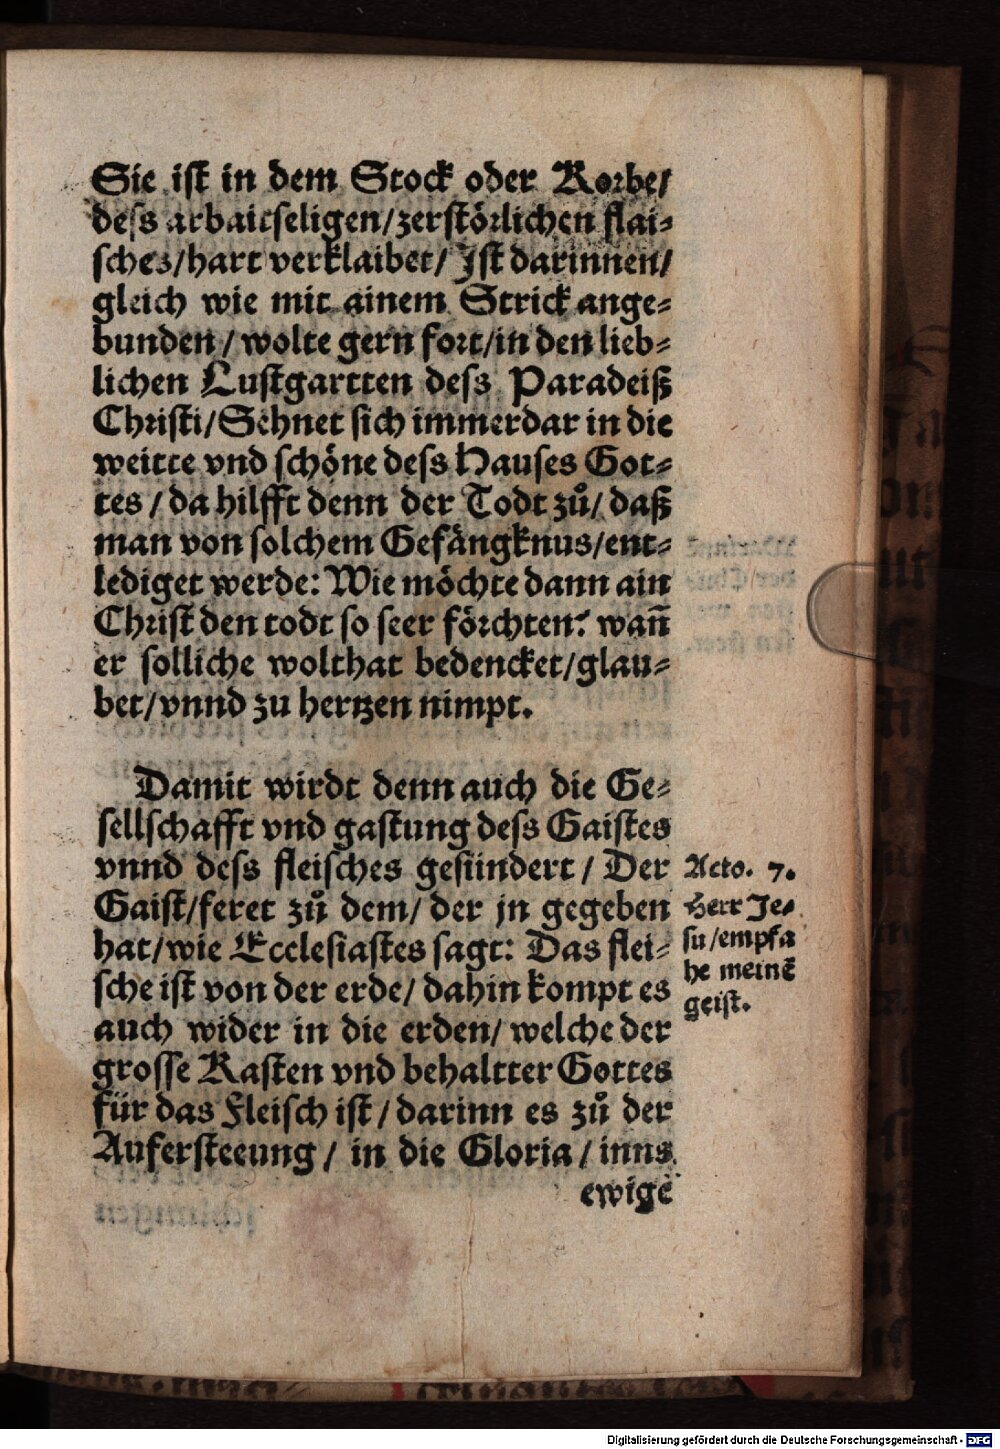 Sie ist in dem Stock oder Korbe/
dess arbaitseligen/zerstörlichen flai⸗
sches/hart verklaibet/ Ist darinnen/
gleich wie mit ainem Strick ange⸗
bunden/ wolte gern fort/in den lieb⸗
lichen Lustgartten dess Paradeiß
Christi/Sehnet sich immerdar in die
weitte vnd schöne dess Hauses Got⸗
tes/ da hilfft denn der Todt zů/ daß
man von solchem Gefängknus/ent⸗
lediget werde: Wie möchte dann ain
Christ den todt so seer förchten? wañ
er solliche wolthat bedencket/glau⸗
bet/vnnd zu hertzen nimpt.
Damit wirdt denn auch die Ge⸗
sellschafft vnd gastung dess Gaistes
vnnd dess fleisches gesündert/ Der
Gaist/feret zů dem/ der jn gegeben
hat/wie Ecclesiastes sagt: Das flei⸗
sche ist von der erde/ dahin kompt es
auch wider in die erden/ welche der
grosse Kasten vnd behaltter Gottes
für das Fleisch ist/ darinn es zů der
Aufersteeung/ in die Gloria/ inns
ewigē
Acto. 7.
Herr Je⸗
su/empfa
he meinē
geist.
Digitalisierung gefördert durch die Deutsche Forschungsgemeinschaft - DFG